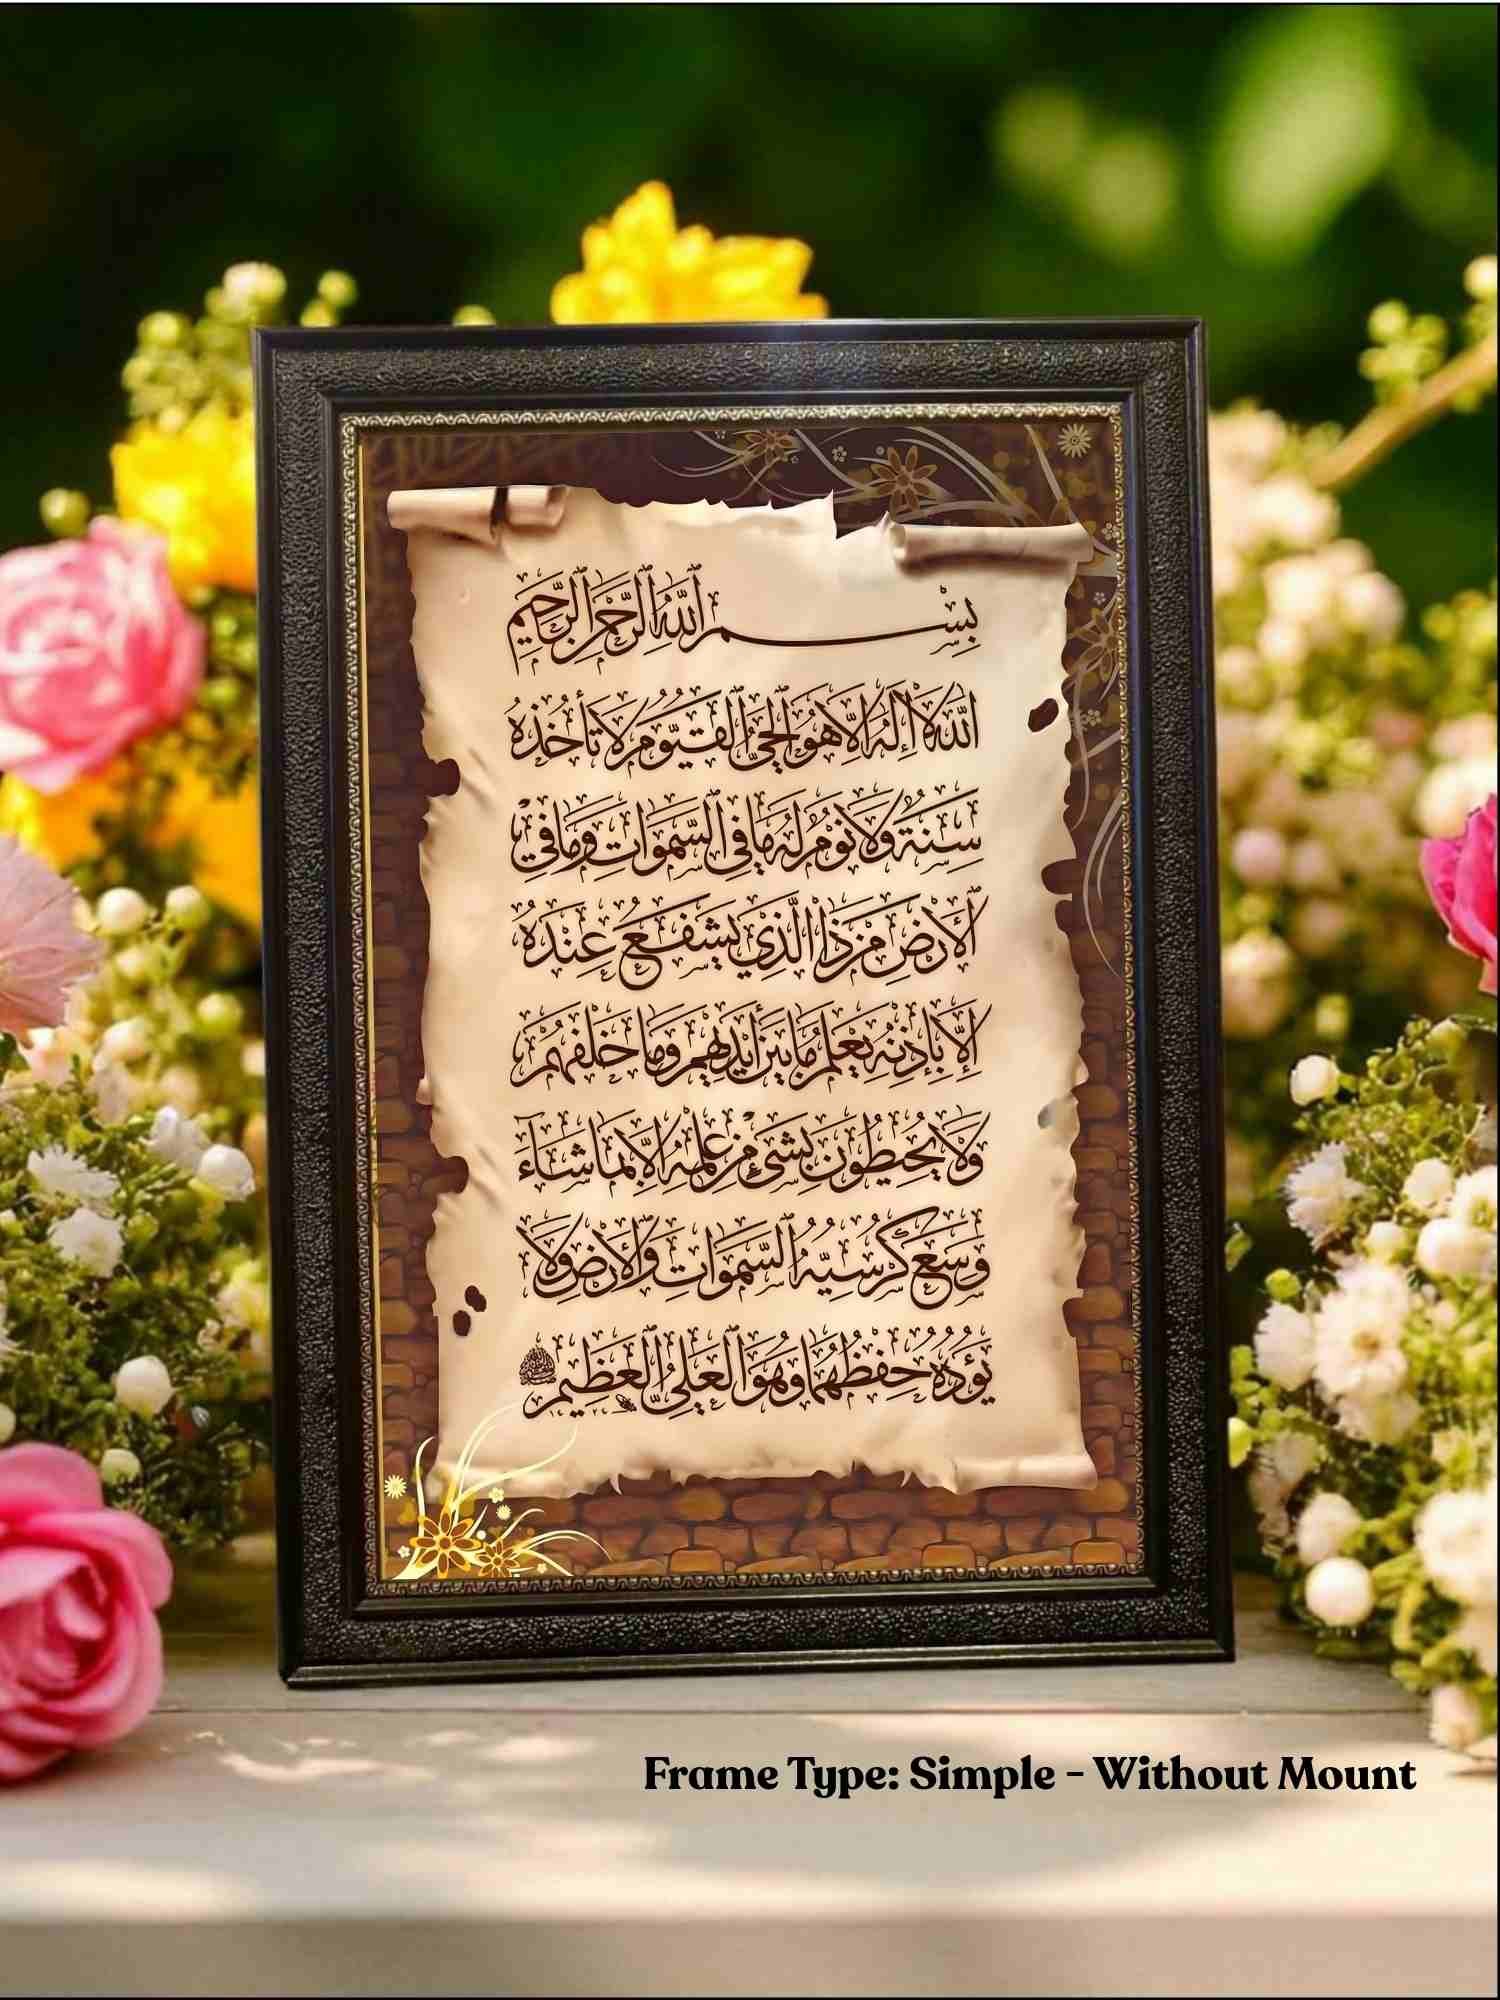 بِسْمِ اللهِ الرَّحْمٰنِ الرَّحِيْمِ
اَللهُ لَا اِلٰهَ اِلَّا هُوَ الْحَيُّ الْقَيُّوْمُ لَا تَأْخُذُهُ
سِنَةٌ وَلَا نَوْمٌ لَهُ مَا فِي السَّمٰوَاتِ وَمَا فِي
الْاَرْضِ مَنْ ذَا الَّذِيْ يَشْفَعُ عِنْدَهُ
اِلَّا بِاِذْنِهِ يَعْلَمُ مَا بَيْنَ اَيْدِيْهِمْ وَمَا خَلْفَهُمْ
وَلَا يُحِيْطُوْنَ بِشَيْءٍ مِنْ عِلْمِهِ اِلَّا بِمَا شَاءَ
وَسِعَ كُرْسِيُّهُ السَّمٰوَاتِ وَالْاَرْضَ وَلَا
يَؤُدُهُ حِفْظُهُمَا وَهُوَ الْعَلِيُّ الْعَظِيْمُ
Frame Type: Simple - Without Mount